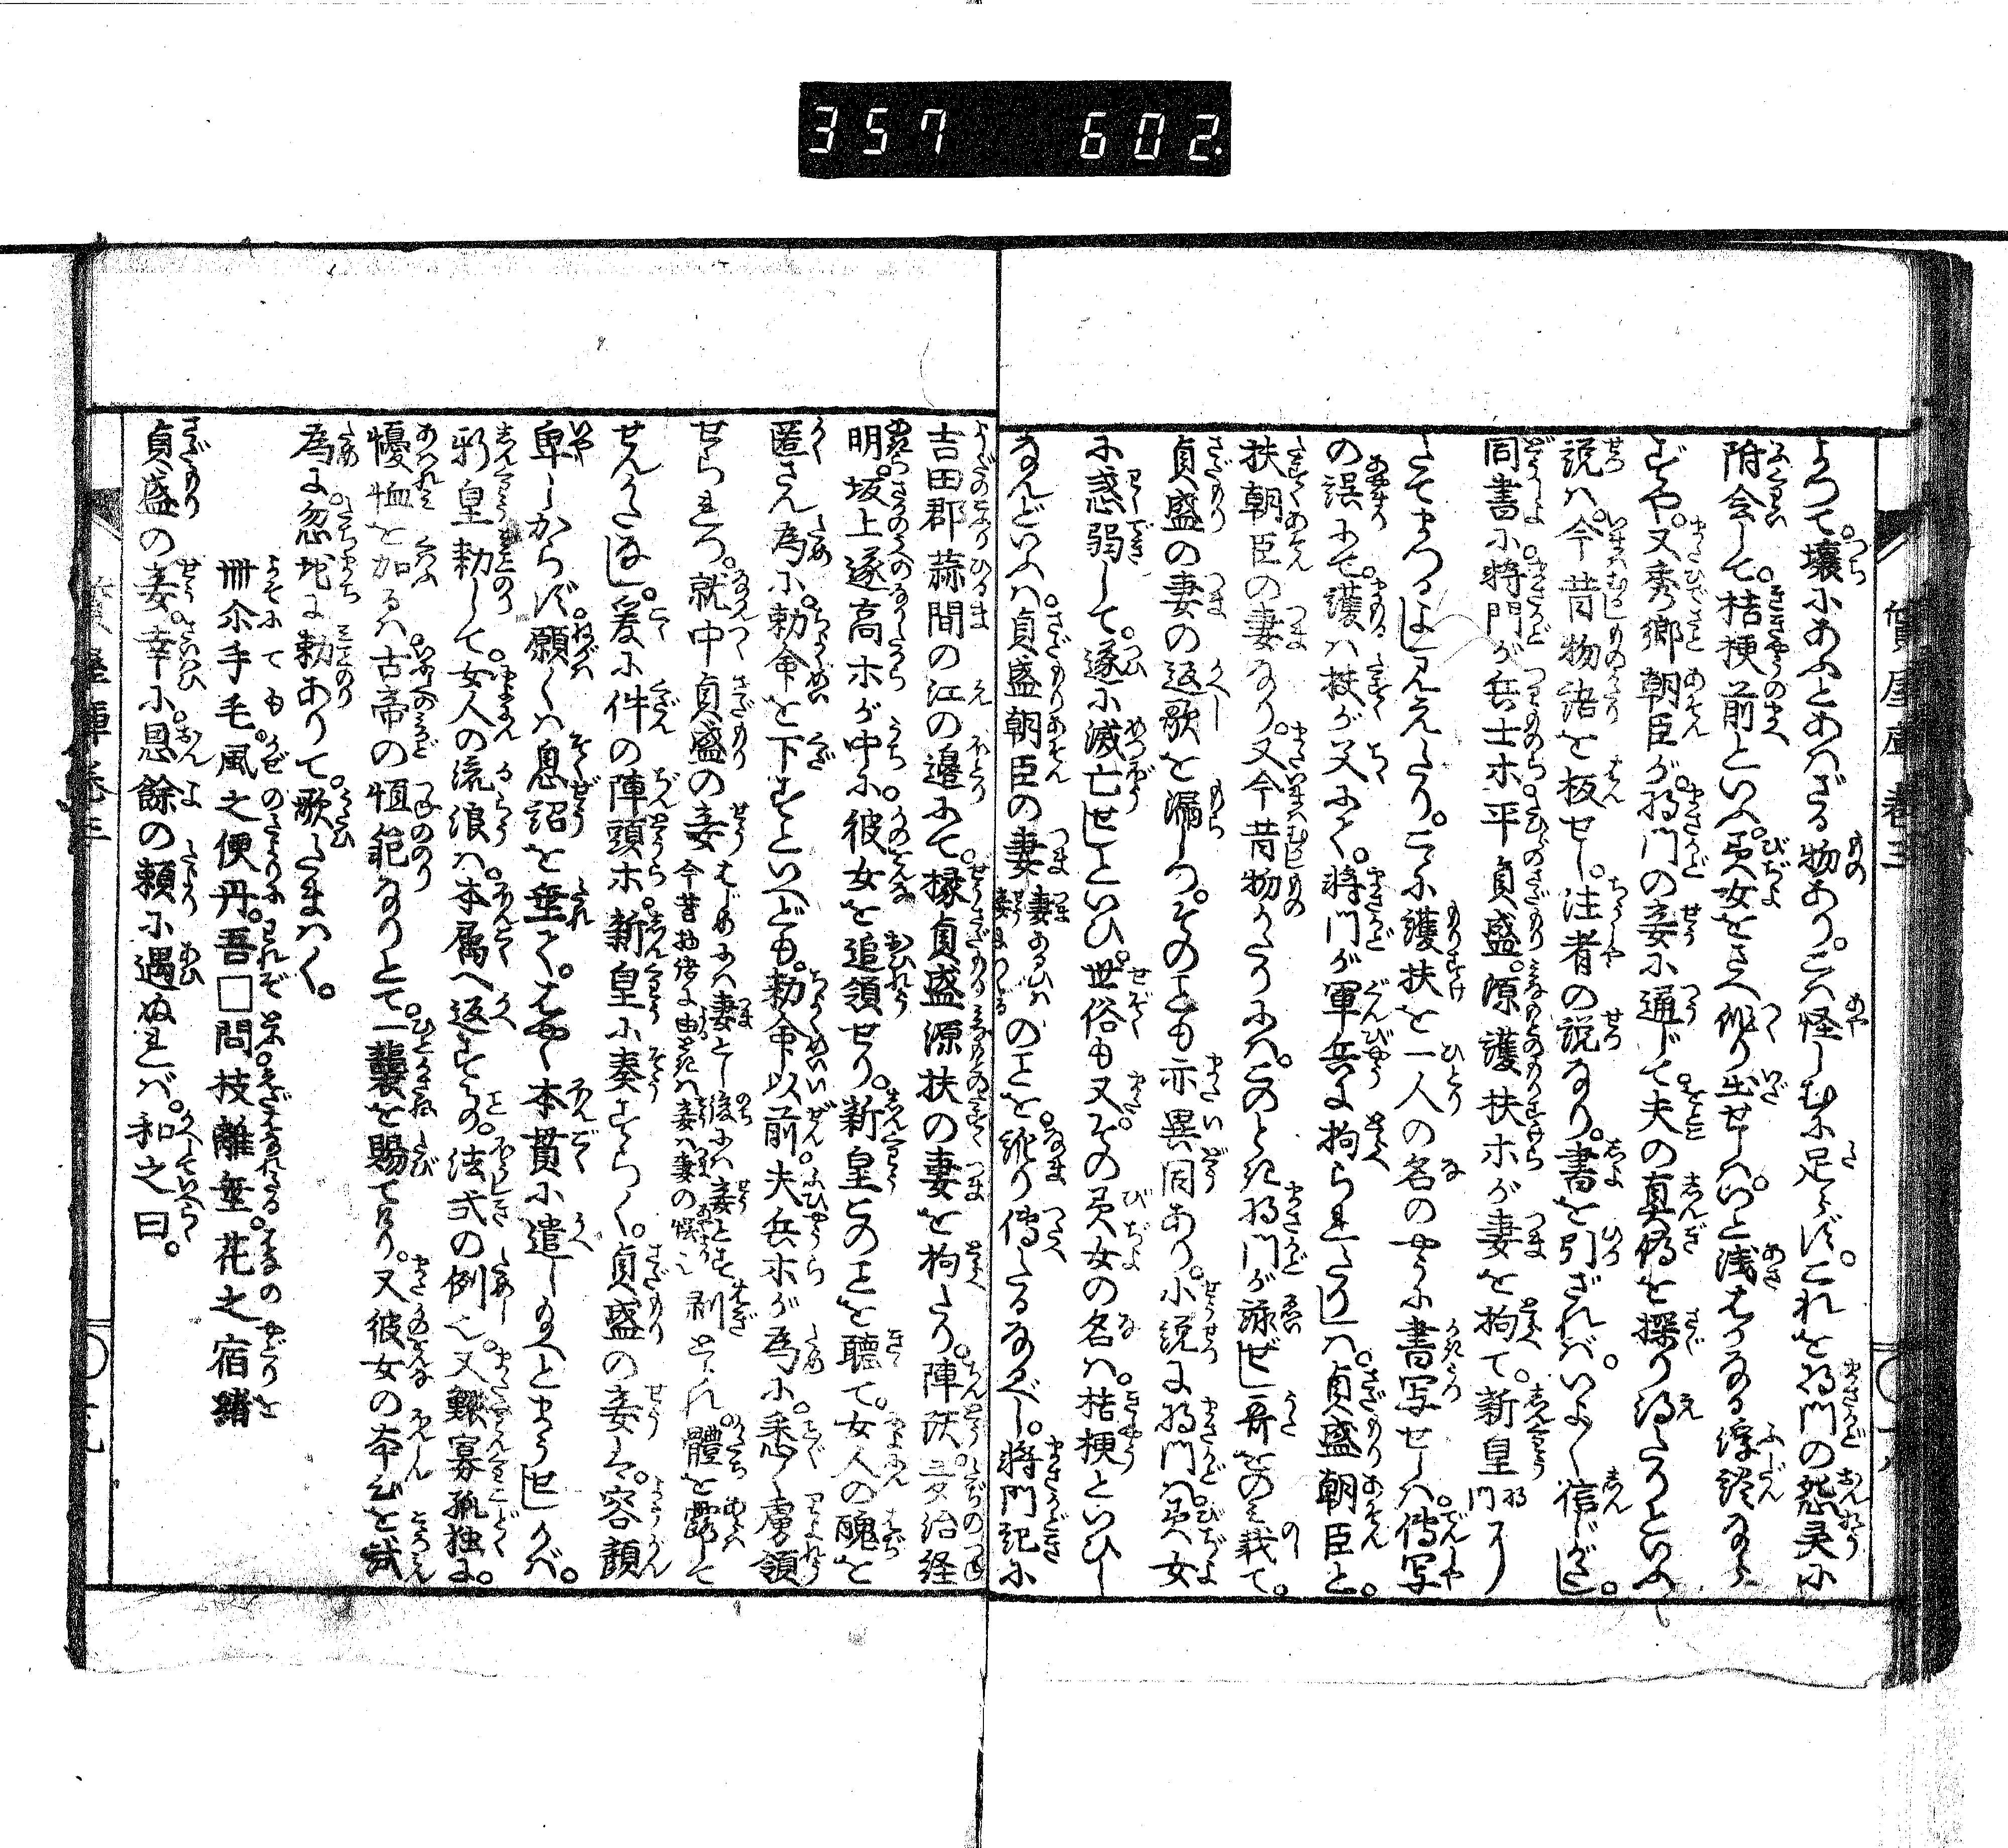 357 602.
質屋庫巻三
よつて。壌にあふとあはざる物あり。こは怪しむに足らず。これを将門の怨灵に
附会して。桔梗前といふ。美女をさへ作り出せしは。いと浅はかなる浮談ならずや。
又秀郷朝臣が。将門の妾に通じて。夫の真偽を探り得たりといふ
説は。今昔物語を板せし。注者の説なり。書を引ざれば。いよいよ信じがたし。
同書に。将門が兵士ホ。平貞盛。源護扶ホが妻を拘て。新皇将門に
たてまつるよし見えたり。こゝに護扶を一人の名のやうに書写せしは。傳写
の誤にて。護は扶が父にて。将門が軍兵に拘られたりしは。貞盛朝臣と。
扶朝臣の妻なり。又今昔物がたりには。このとき将門が詠ぜし哥をのミ載て。
貞盛の妻の返歌を漏しつ。そのことも亦異同あり。小説に将門は美女
に惑溺して。遂に滅亡せしといひ。世俗も又その美女の名は。桔梗といひし
なんどいふは。貞盛朝臣の妻妻あるひは妾につくるのことを。訛り傳へたるなるべし。将門記に
吉田郡蒜間の江の邉にて。掾貞盛源扶の妻を拘たり。陣頭多治経
明。坂上遂高ホが中に。彼女を追領せり。新皇このことを聴て。女人の醜を
匿さん為に。勅命を下すといへども。勅命以前夫兵ホが為に。悉く虜領
せられつ。就中貞盛の妾はじめには妻とし後には妾とす今昔物語に由ときは妾は妻の悞也剥とられ體を露して
せんかたなし。爰に件の陣頭ホ。新皇に奏すらく。貞盛の妾は。容顔
卑しからず。願くは恩詔を垂て。はやく本貫に遣し給へとまうせしかば。
新皇勅して。女人の流浪は。本属へ返すもの。法式の例也。又鰥寡孤独に。
憂恤を加るは古帝の恒範なりとて。一襲を賜てけり。又彼女の本心を試ん
為に忽地に勅ありて。歌たまはく。
卌尒手毛。風之便丹。吾□問技離垂。花之宿緒
貞盛の妾。幸に。恩餘の頼に遇ぬれば。和之曰。